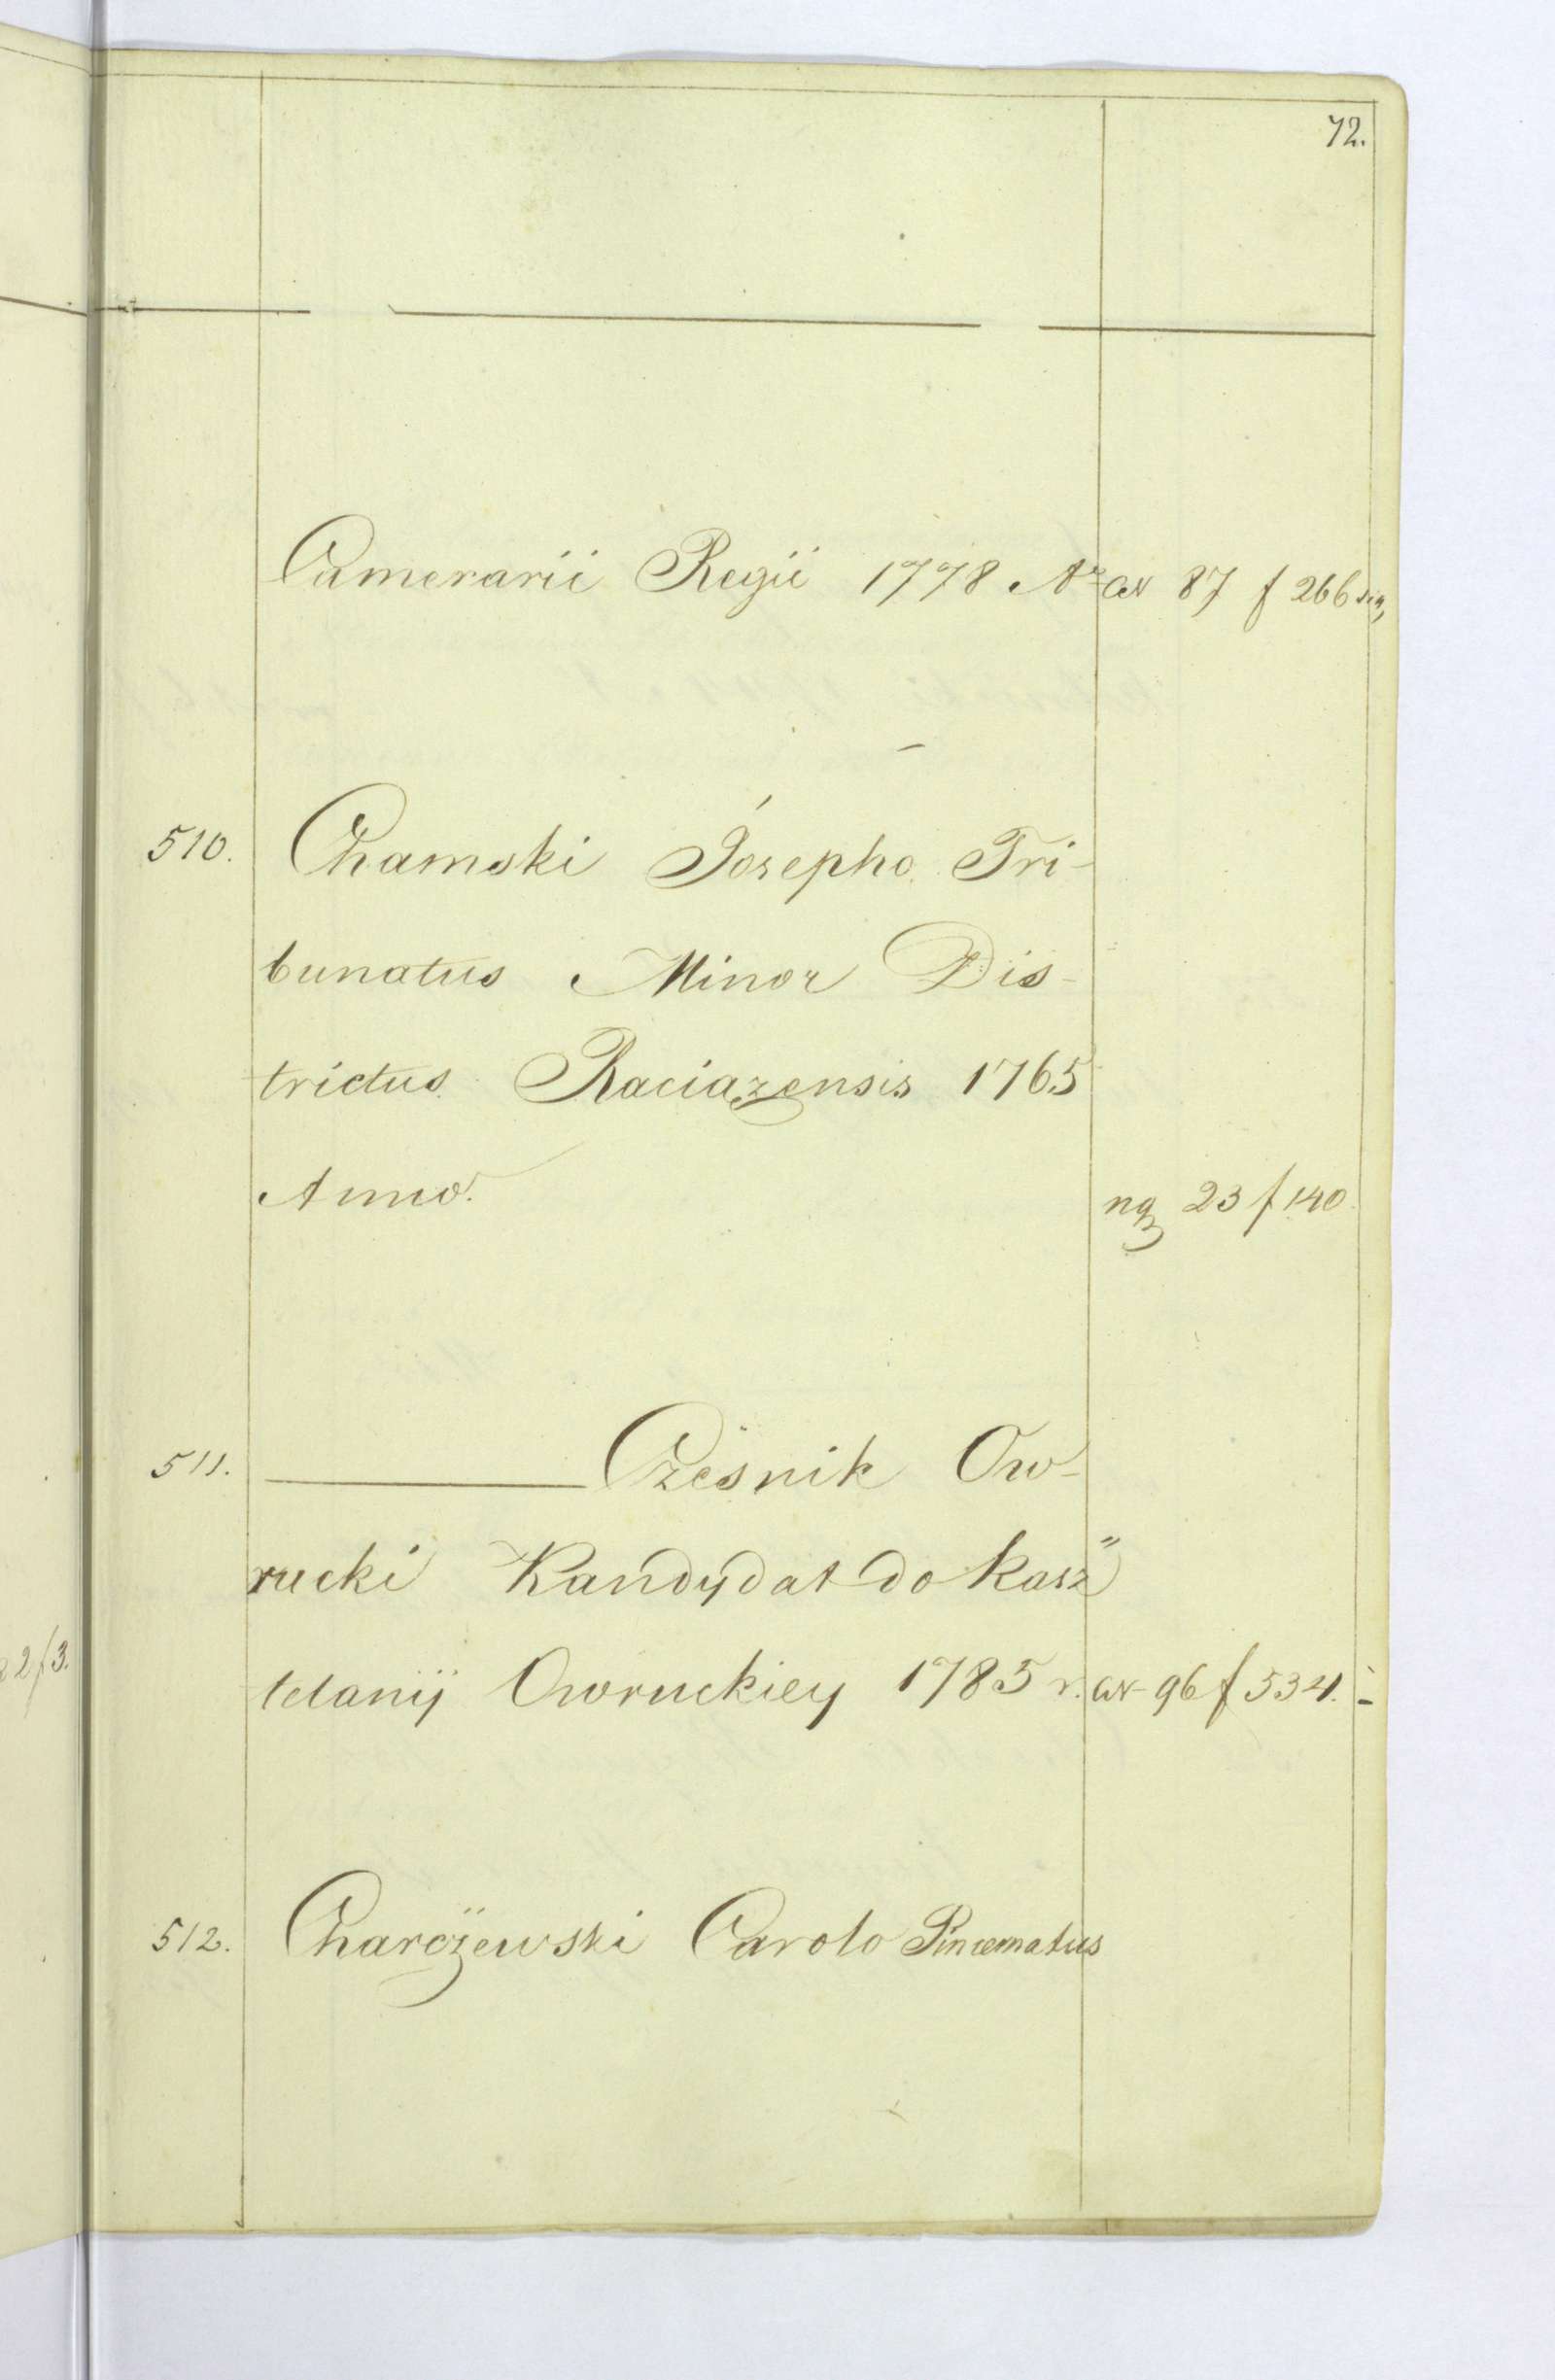 72.
Camerarii Regii 1778 Ao av 87 f 266
510. Chamski Josepho Tri-
bunatus Minor Dis-
trictus Raciązensis 1765
Anno. 23 f 140
511. ——— Cześnik Ow-
rucki Kandydat do Kasz„
telanij Owruckiey 1785 r. av 96 f 534.
2 f 3.
512. Charczewski Carolo Pincernatus